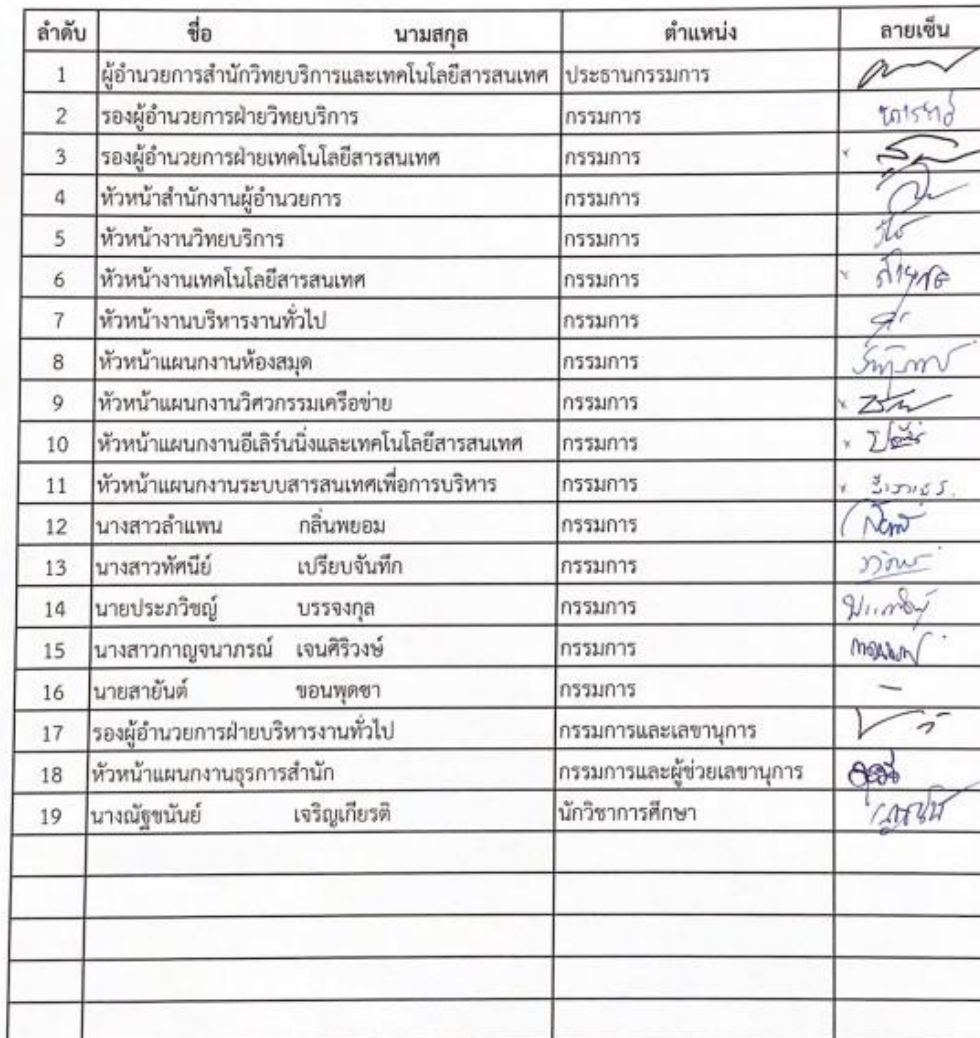 ลำดับ ชื่อ นามสกุล ตำแหน่ง ลายเซ็น
1 ผู้อำนวยการสำนักวิทยบริการและเทคโนโลยีสารสนเทศ ประธานกรรมการ
2 รองผู้อำนวยการฝ่ายวิทยบริการ กรรมการ
3 รองผู้อำนวยการฝ่ายเทคโนโลยีสารสนเทศ กรรมการ
4 หัวหน้าสำนักงานผู้อำนวยการ กรรมการ
5 หัวหน้างานวิทยบริการ กรรมการ
6 หัวหน้างานเทคโนโลยีสารสนเทศ กรรมการ
7 หัวหน้างานบริหารงานทั่วไป กรรมการ
8 หัวหน้าแผนกงานห้องสมุด กรรมการ
9 หัวหน้าแผนกงานวิศวกรรมเครือข่าย กรรมการ
10 หัวหน้าแผนกงานอีเลิร์นนิ่งและเทคโนโลยีสารสนเทศ กรรมการ
11 หัวหน้าแผนกงานระบบสารสนเทศเพื่อการบริหาร กรรมการ
12 นางสาวลำแพน กลิ่นพยอม กรรมการ
13 นางสาวทัศนีย์ เปรียบจันทึก กรรมการ
14 นายประภวิชญ์ บรรจงกุล กรรมการ
15 นางสาวกาญจนาภรณ์ เจนศิริวงษ์ กรรมการ
16 นายสายันต์ ขอนพุดซา กรรมการ -
17 รองผู้อำนวยการฝ่ายบริหารงานทั่วไป กรรมการและเลขานุการ
18 หัวหน้าแผนกงานธุรการสำนัก กรรมการและผู้ช่วยเลขานุการ
19 นางณัฐชนันย์ เจริญเกียรติ นักวิชาการศึกษา